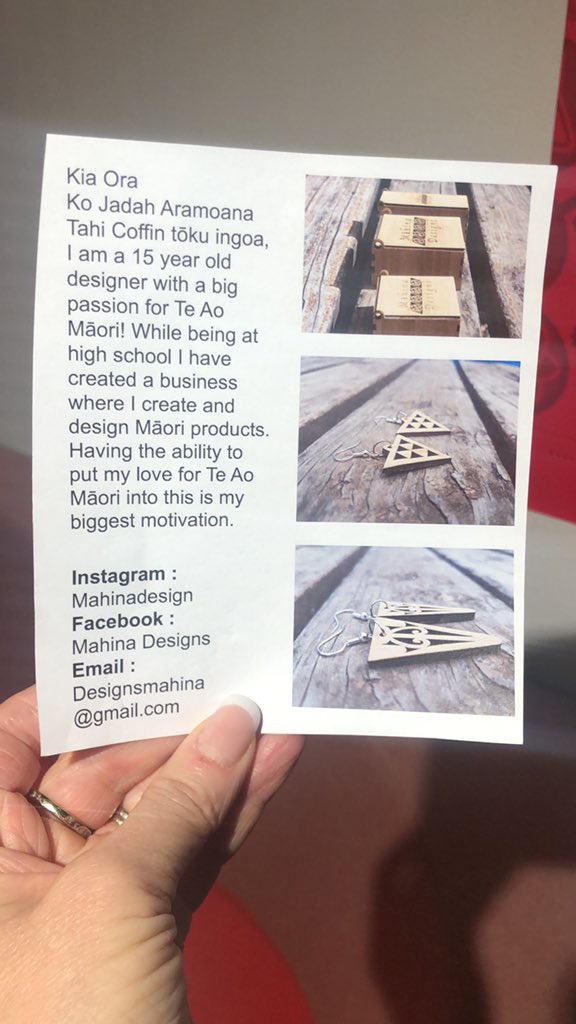 Kia Ora
Ko Jadah Aramoana
Tahi Coffin tōku ingoa,
I am a 15 year old
designer with a big
passion for Te Ao
Māori! While being at
high school I have
created a business
where I create and
design Māori products.
Having the ability to
put my love for Te Ao
Māori into this is my
biggest motivation.
Instagram :
Mahinadesign
Facebook :
Mahina Designs
Email :
Designsmahina
@gmail.com
Mahina
Designs
Mahina
Designs